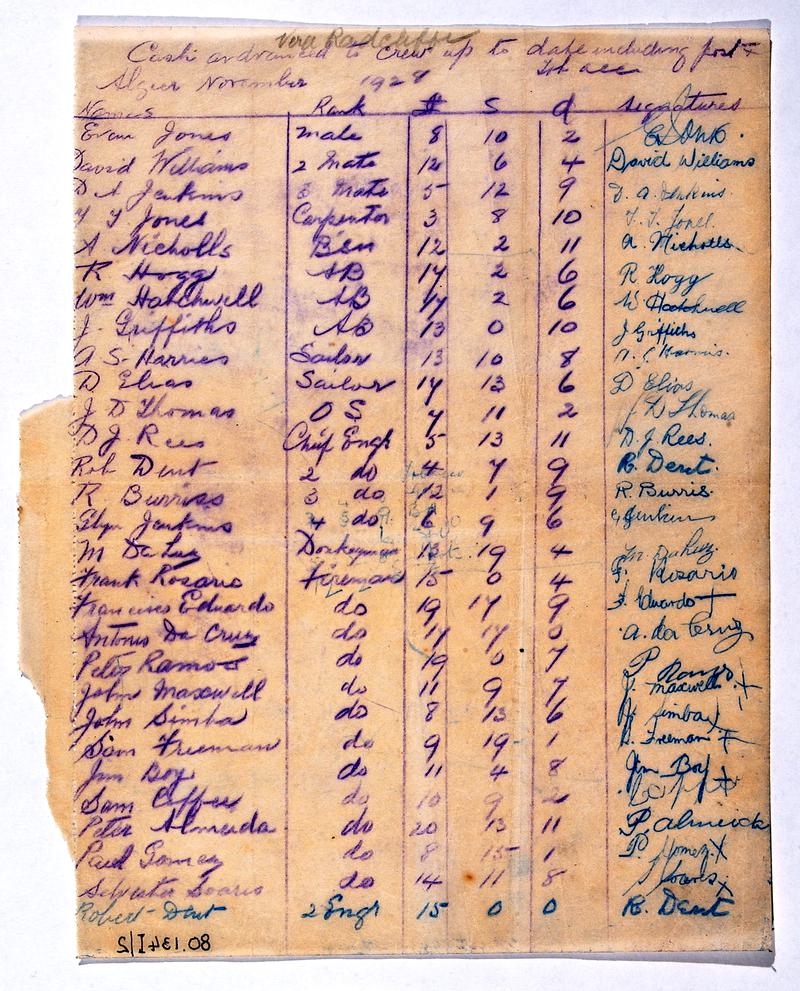 Vera Radcliffe
Cash advanced to Crew up to date including port +
Algier November 1928 Tobacco
Names Rank £ s d Signatures
Evan Jones Mate 8 10 2
David Williams 2 Mate 12 6 4 David Williams
D A Jenkins 3 Mate 5 12 9 D. A. Jenkins.
T J Jones Carpentor 3 8 10 T. J. Jones.
A Nicholls 12 2 11 A. Nicholls.
R Hogg AB 14 2 6 R Hogg
Wm Hatchwell AB 14 2 6 W Hatchwell
J. Griffiths AB 13 0 10 J Griffiths
A S Harries Sailor 13 10 8
D Elias Sailor 14 13 6 D Elias
J D Thomas O S 7 11 2 J D Thomas
D J Rees Chief Engr 5 13 11 D. J. Rees.
Rob Dent 2 do 4 7 9 R. Dent.
R. Burriss 3 do 12 1 9 R. Burris.
Glyn Jenkins 4 do 6 9 6 G Jenkins
M Da Luz Donkeyman 13 19 4 M Da Luz.
Frank Rosario Fireman 15 0 4 F. Rosario
Francisco Eduardo do 19 17 9 F. Eduardo +
Antonis Da Cruz do 14 17 0 A. da Cruz
Peter Ramos do 19 0 7 P Ramos
John Maxwell do 11 9 7 J. Maxwell. +
John Simba do 8 13 6 J Simba x
Sam Freeman do 9 19 1 S. Freeman +
Jim Boy do 11 4 8 Jim Boy +
Sam Coffee do 10 9 2
Peter Almeida do 20 13 11 P. Almeida
Paul Gomez do 8 15 1 P. Gomez. X
Selvester Soaris do 14 11 8 S Soares. x
Robert Dent 2 Engr 15 0 0 R. Dent
80.134I/2